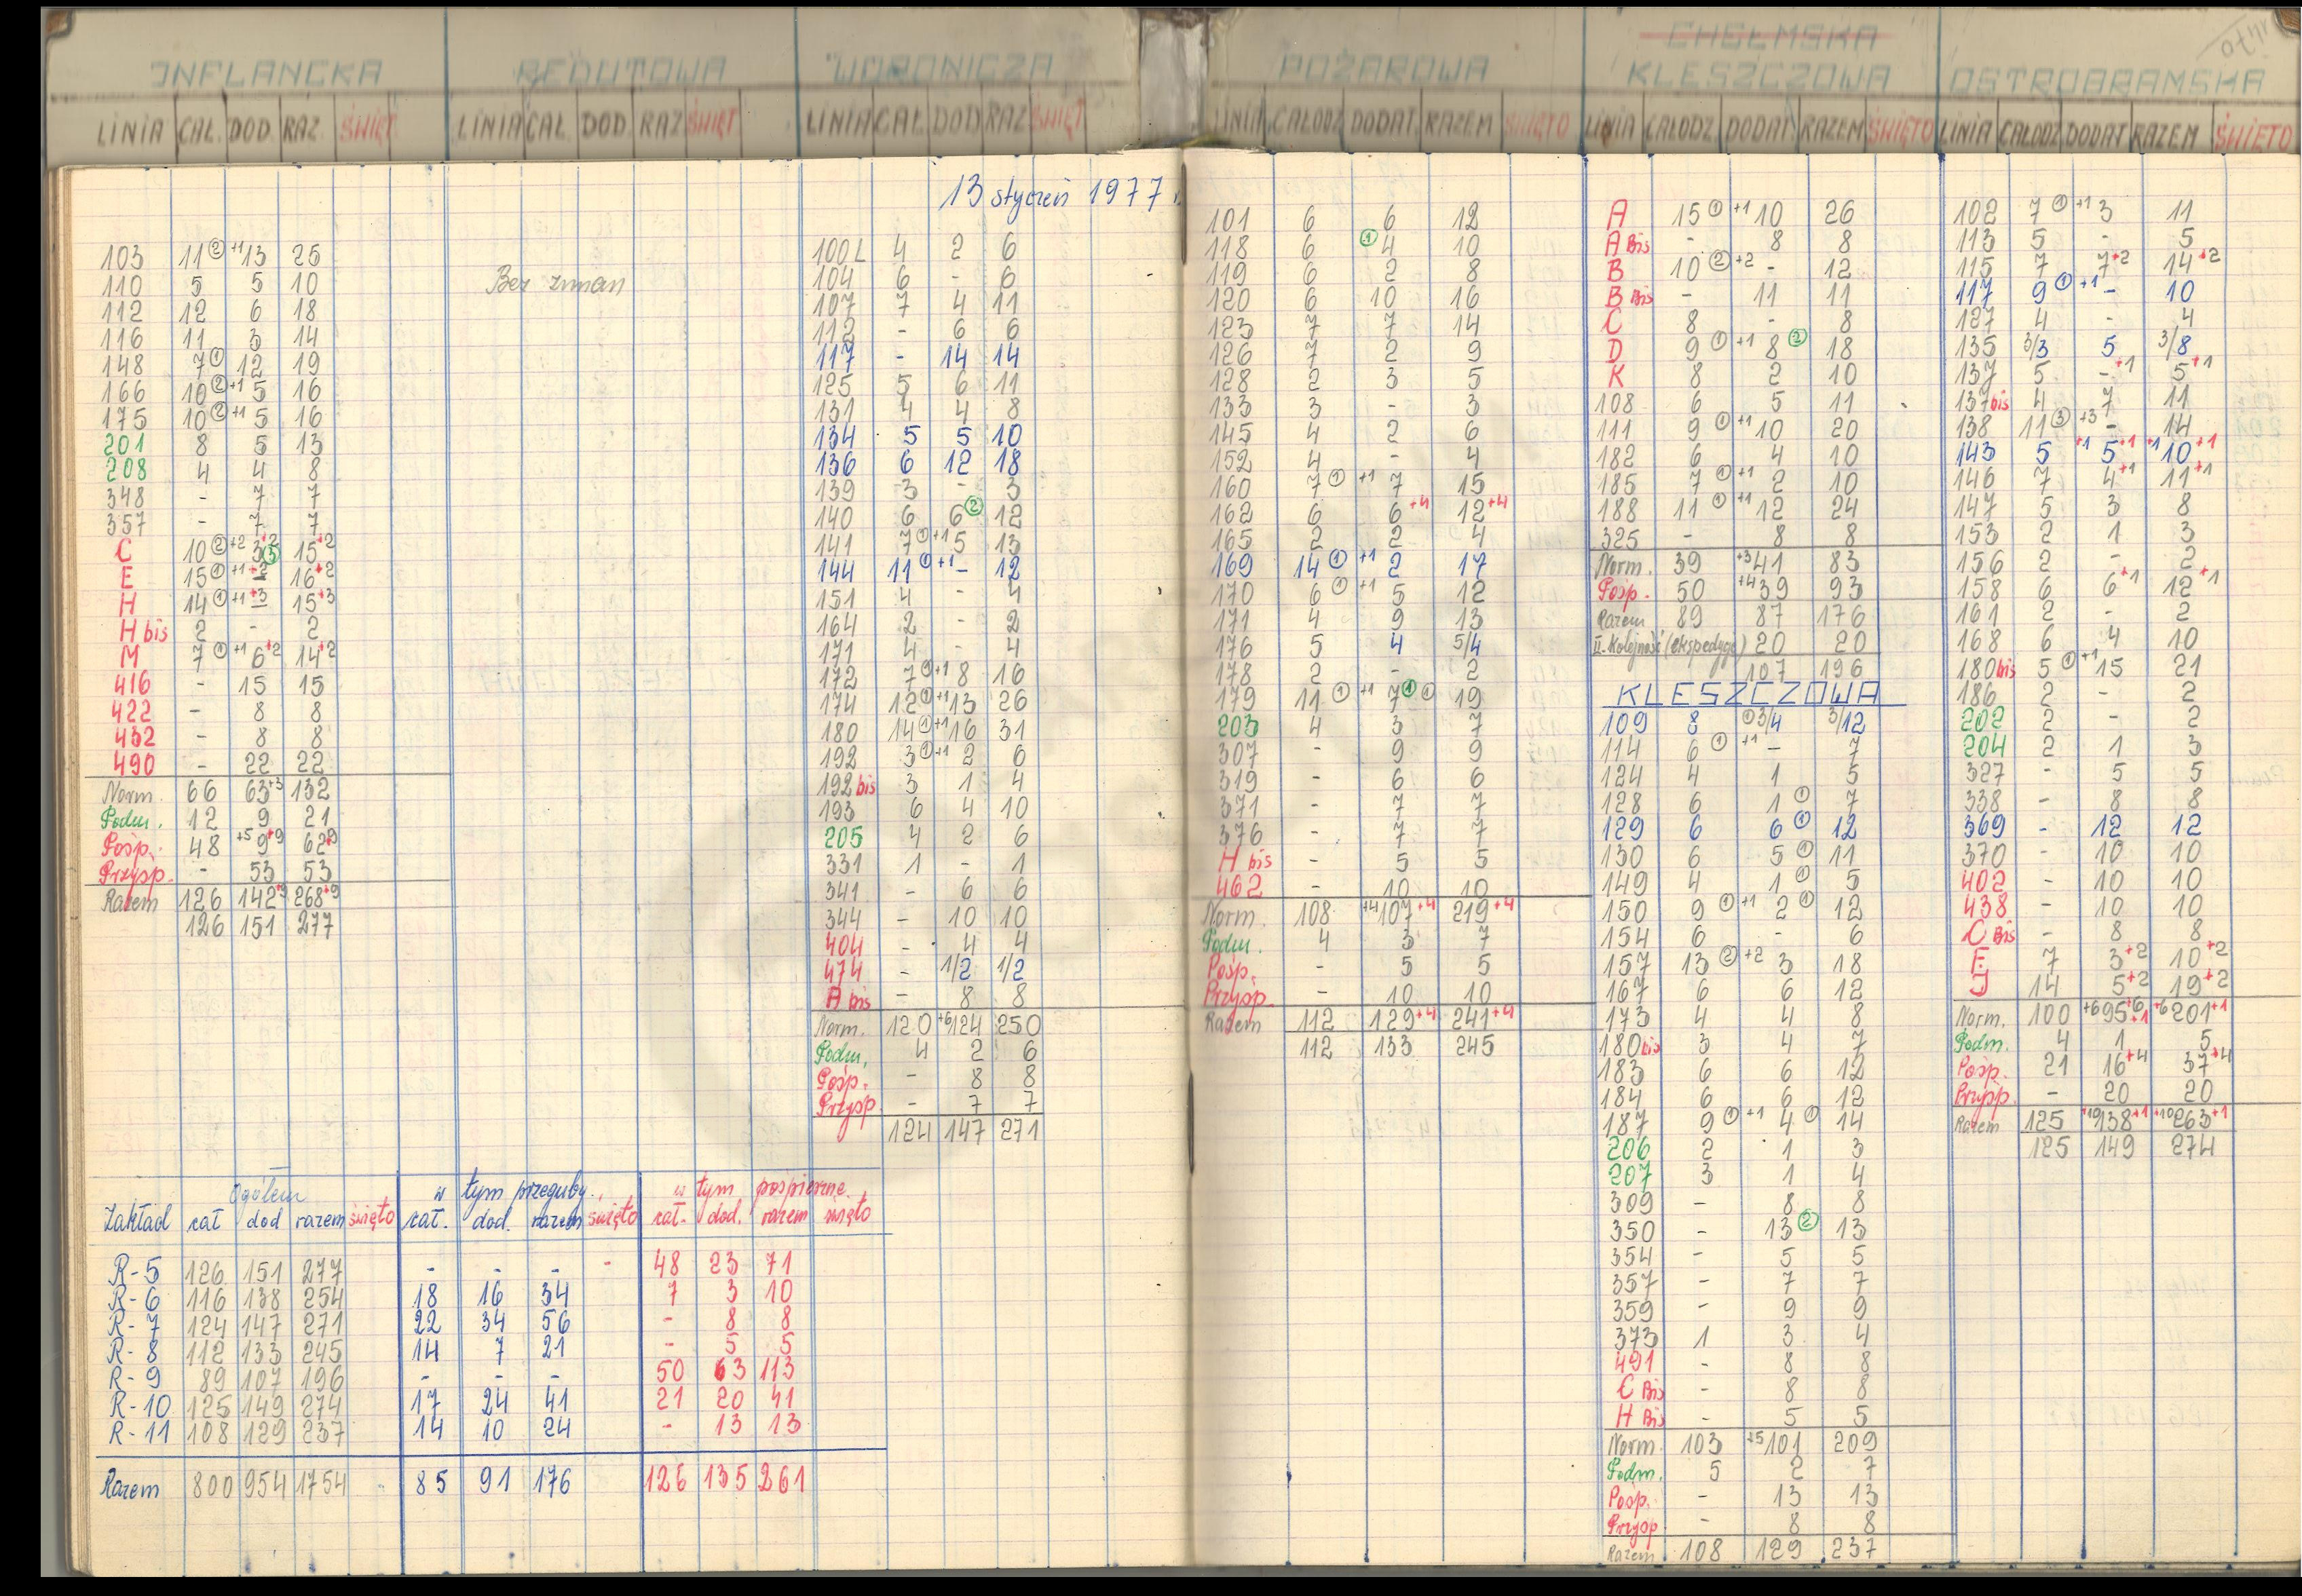 INFLANCKA
LINIA CAŁ. DOD. RAZ. ŚWIĘT
103 11② +1 13 26
110 5 5 10
112 12 6 18
116 11 3 14
148 7① 12 19
166 10② +1 5 16
175 10② +1 5 16
201 8 5 13
208 4 4 8
348 - 7 7
357 - 7 7
C 10② +2 3+2 ③ 15+2
E 15① +1 +2 - 16+2
H 14① +1 +3 - 15+3
H bis 2 - 2
M 7① +1 6+2 14+2
416 - 15 15
422 - 8 8
432 - 8 8
490 - 22 22
Norm. 66 63+3 132
Podm. 12 9 21
Pośp. 48 +5 9+9 62+9
Przysp. - 53 53
Razem 126 142+9 268+9
126 151 277
REDUTOWA
LINIA CAŁ. DOD. RAZ ŚWIĘT
Bez zmian
WORONICZA
LINIA CAŁ. DOD RAZ ŚWIĘT
13 styczeń 1977 r.
100L 4 2 6
104 6 - 6
107 7 4 11
112 - 6 6
117 - 14 14
125 5 6 11
131 4 4 8
134 5 5 10
136 6 12 18
139 3 - 3
140 6 6② 12
141 7① +1 5 13
144 11① +1 - 12
151 4 - 4
164 2 - 2
171 4 - 4
172 7① +1 8 16
174 12① +1 13 26
180 14① +1 16 31
192 3① +1 2 6
192 bis 3 1 4
193 6 4 10
205 4 2 6
331 1 - 1
341 - 6 6
344 - 10 10
404 - 4 4
474 - 1/2 1/2
A bis - 8 8
Norm. 120 +6 124 250
Podm. 4 2 6
Pośp. - 8 8
Przysp. - 7 7
124 147 271
Zakład Ogółem w tym przeguby. w tym pospieszne.
cał dod razem święto cał. dod. razem święto cał. dod. razem święto
R-5 126 151 277 - - - - 48 23 71
R-6 116 138 254 18 16 34 7 3 10
R-7 124 147 271 22 34 56 - 8 8
R-8 112 133 245 14 7 21 - 5 5
R-9 89 107 196 - - - 50 63 113
R-10 125 149 274 17 24 41 21 20 41
R-11 108 129 237 14 10 24 - 13 13
Razem 800 954 1754 85 91 176 126 135 261
POŻAROWA
LINIA CAŁODZ DODAT. RAZEM ŚWIĘTO
101 6 6 12
118 6 ①4 10
119 6 2 8
120 6 10 16
123 7 7 14
126 7 2 9
128 2 3 5
133 3 - 3
145 4 2 6
152 4 - 4
160 7① +1 7 15
162 6 6+4 12+4
165 2 2 4
169 14① +1 2 17
170 6① +1 5 12
171 4 9 13
176 5 4 5/4
178 2 - 2
179 11① +1 7① ① 19
203 4 3 7
307 - 9 9
319 - 6 6
371 - 7 7
376 - 7 7
H bis - 5 5
462 - 10 10
Norm. 108 +4 107+4 219+4
Podm. 4 3 7
Pośp. - 5 5
Przysp. - 10 10
Razem 112 129+4 241+4
112 133 245
CHEŁMSKA
KLESZCZOWA
LINIA CAŁODZ. DODAT. RAZEM ŚWIĘTO
A 15① +1 10 26
A Bis - 8 8
B 10② +2 - 12
B Bis - 11 11
C 8 - 8
D 9① +1 8② 18
K 8 2 10
108 6 5 11
111 9① +1 10 20
182 6 4 10
185 7① +1 2 10
188 11① +1 12 24
325 - 8 8
Norm. 39 +3 41 83
Pośp. 50 +4 39 93
Razem 89 87 176
II. Kolejność (ekspedycje) 20 20
107 196
KLESZCZOWA
109 8 ①3/4 3/12
114 6① +1 - 7
124 4 1 5
128 6 1① 7
129 6 6① 12
130 6 5① 11
149 4 1① 5
150 9① +1 2① 12
154 6 - 6
157 13② +2 3 18
167 6 6 12
173 4 4 8
180 bis 3 4 7
183 6 6 12
184 6 6 12
187 9① +1 4① 14
206 2 1 3
207 3 1 4
309 - 8 8
350 - 13② 13
354 - 5 5
357 - 7 7
359 - 9 9
373 1 3 4
491 - 8 8
C Bis - 8 8
H Bis - 5 5
Norm. 103 +5 101 209
Podm. 5 2 7
Pośp. - 13 13
Przysp. - 8 8
Razem 108 129 237
OSTROBRAMSKA
LINIA CAŁODZ DODAT RAZEM ŚWIĘTO
102 7① +1 3 11
113 5 - 5
115 7 7+2 14+2
117 9① +1 - 10
127 4 - 4
135 3/3 5 3/8
137 5 -+1 5+1
137 bis 4 7 11
138 11③ +3 - 14
143 5 +1 5+1 +1 10+1
146 7 4+1 11+1
147 5 3 8
153 2 1 3
156 2 - 2
158 6 6+1 12+1
161 2 - 2
168 6 4 10
180 bis 5① +1 15 21
186 2 - 2
202 2 - 2
204 2 1 3
327 - 5 5
338 - 8 8
369 - 12 12
370 - 10 10
402 - 10 10
438 - 10 10
C Bis - 8 8
E 7 3+2 10+2
J 14 5+2 19+2
Norm. 100 +6 95+6 +1 +6 201+1
Podm. 4 1 5
Pośp. 21 16+4 37+4
Przysp. - 20 20
Razem 125 +10 138+1 +10 263+1
125 149 274